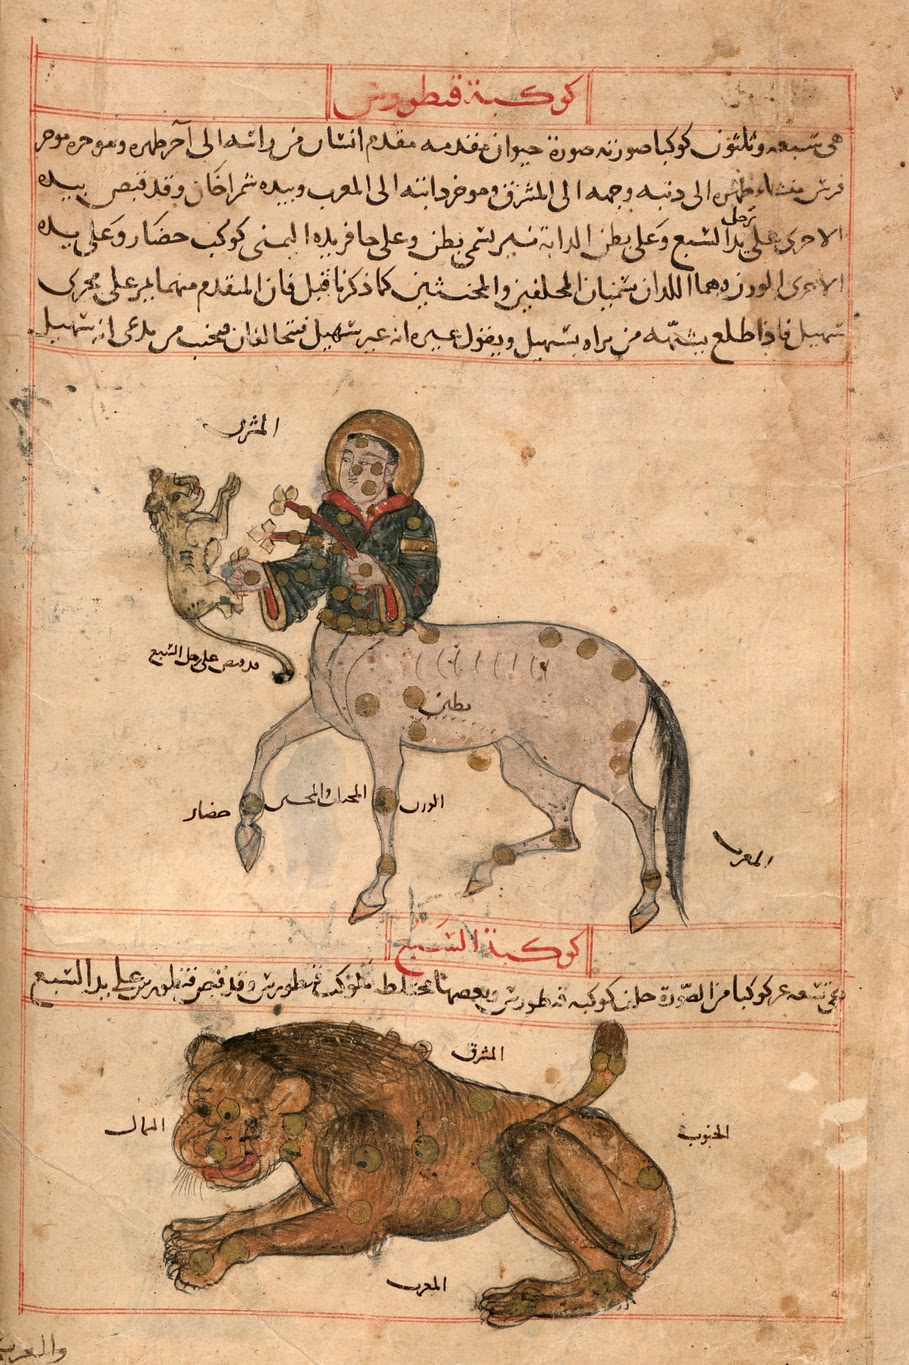 كوكبة قنطورس
هي سبعة وثلثون كوكبا صورته صورة حيوان مقدمه مقدم انسان من راسه الى آخر ظهره وموخره موخر
فرس من منشاء ظهره الى ذنبه وجهه الى المشرق وموخر دابته الى المغرب وبيده شمراخان وقد قبض بيده
الاخرى على يد السبع وعلى بطن الدابة نير يسمى بطن وعلى حافر يده اليمنى كوكب حضار وعلى يده
رجل
الاخرى الوزن وهما اللذان يسميان المحلفين والمحنثين كما ذكرنا قبل فان المتقدم منهما يمر على مجرى
سهيل فاذا طلع يشبه من يراه بسهيل ويقول غيره انه غير سهيل فيتحالفان فيحنث من يدعى انه سهيل
المشرق
قد قبض على رجل السبع
بطن
حضار
المحلفان والمحنثين
الوزن
المغرب
كوكبة السبع
هي تسعة عشر كوكبا من الصورة خلف كوكبة قنطورس وبعضها مختلط بكوكبة قنطورس وقد قبض قنطورس على يد السبع
المشرق
الشمال
الجنوب
المغرب